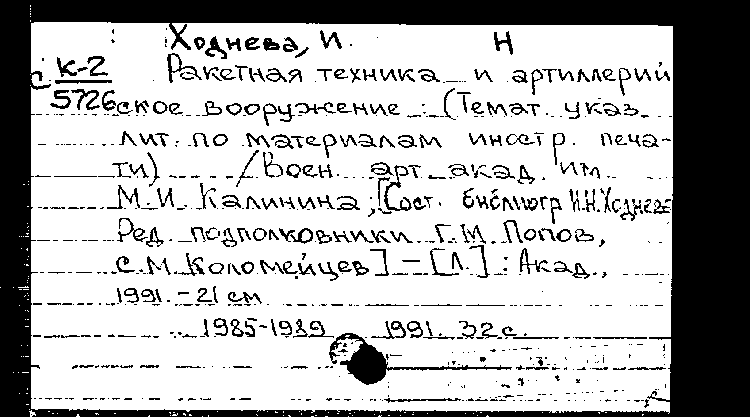 Ходнева, И. Н
с К-2 Ракетная техника и артиллерий
5726 ское вооружение : (Темат. указ.
лит. по материалам иностр. печа-
ти) /Воен. арт. акад. им.
М.И. Калинина ; [Сост. библиогр И.Н.Ходнева
Ред. подполковники Г.М. Попов,
С.М. Коломейцев] – [Л.] : Акад.,
1991. – 21 см
1985-1989 1991. 32 с.